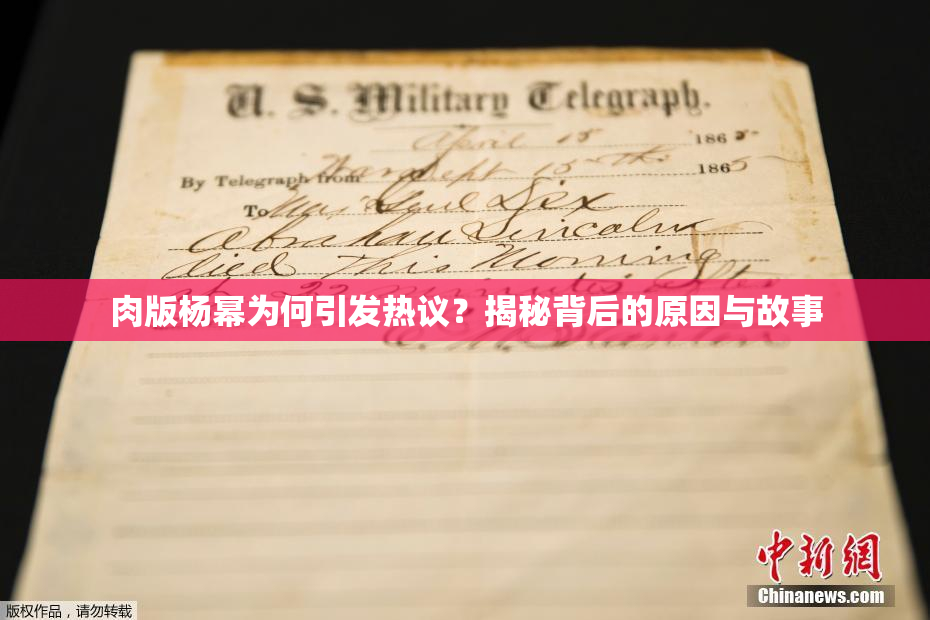 U. S. Military Telegraph.
April 15 1865
By Telegraph from War Dept 15th 1865
To Maj Genl Dix
Abraham Lincoln
died This Morning
at 22 minutes after
肉版杨幂为何引发热议？揭秘背后的原因与故事
E. M. Stanton
中新网
Chinanews.com
版权作品，请勿转载